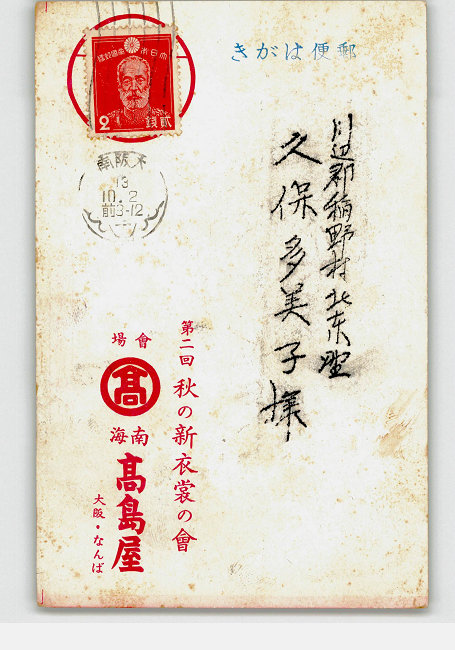 郵便はがき
大日本帝國郵便
2
貳錢
大阪南
13
10.2
前8-12
川辺郡稲野村北
久保多美子様
第二回 秋の新衣裳の會
會場
髙
南海
髙島屋
大阪・なんば